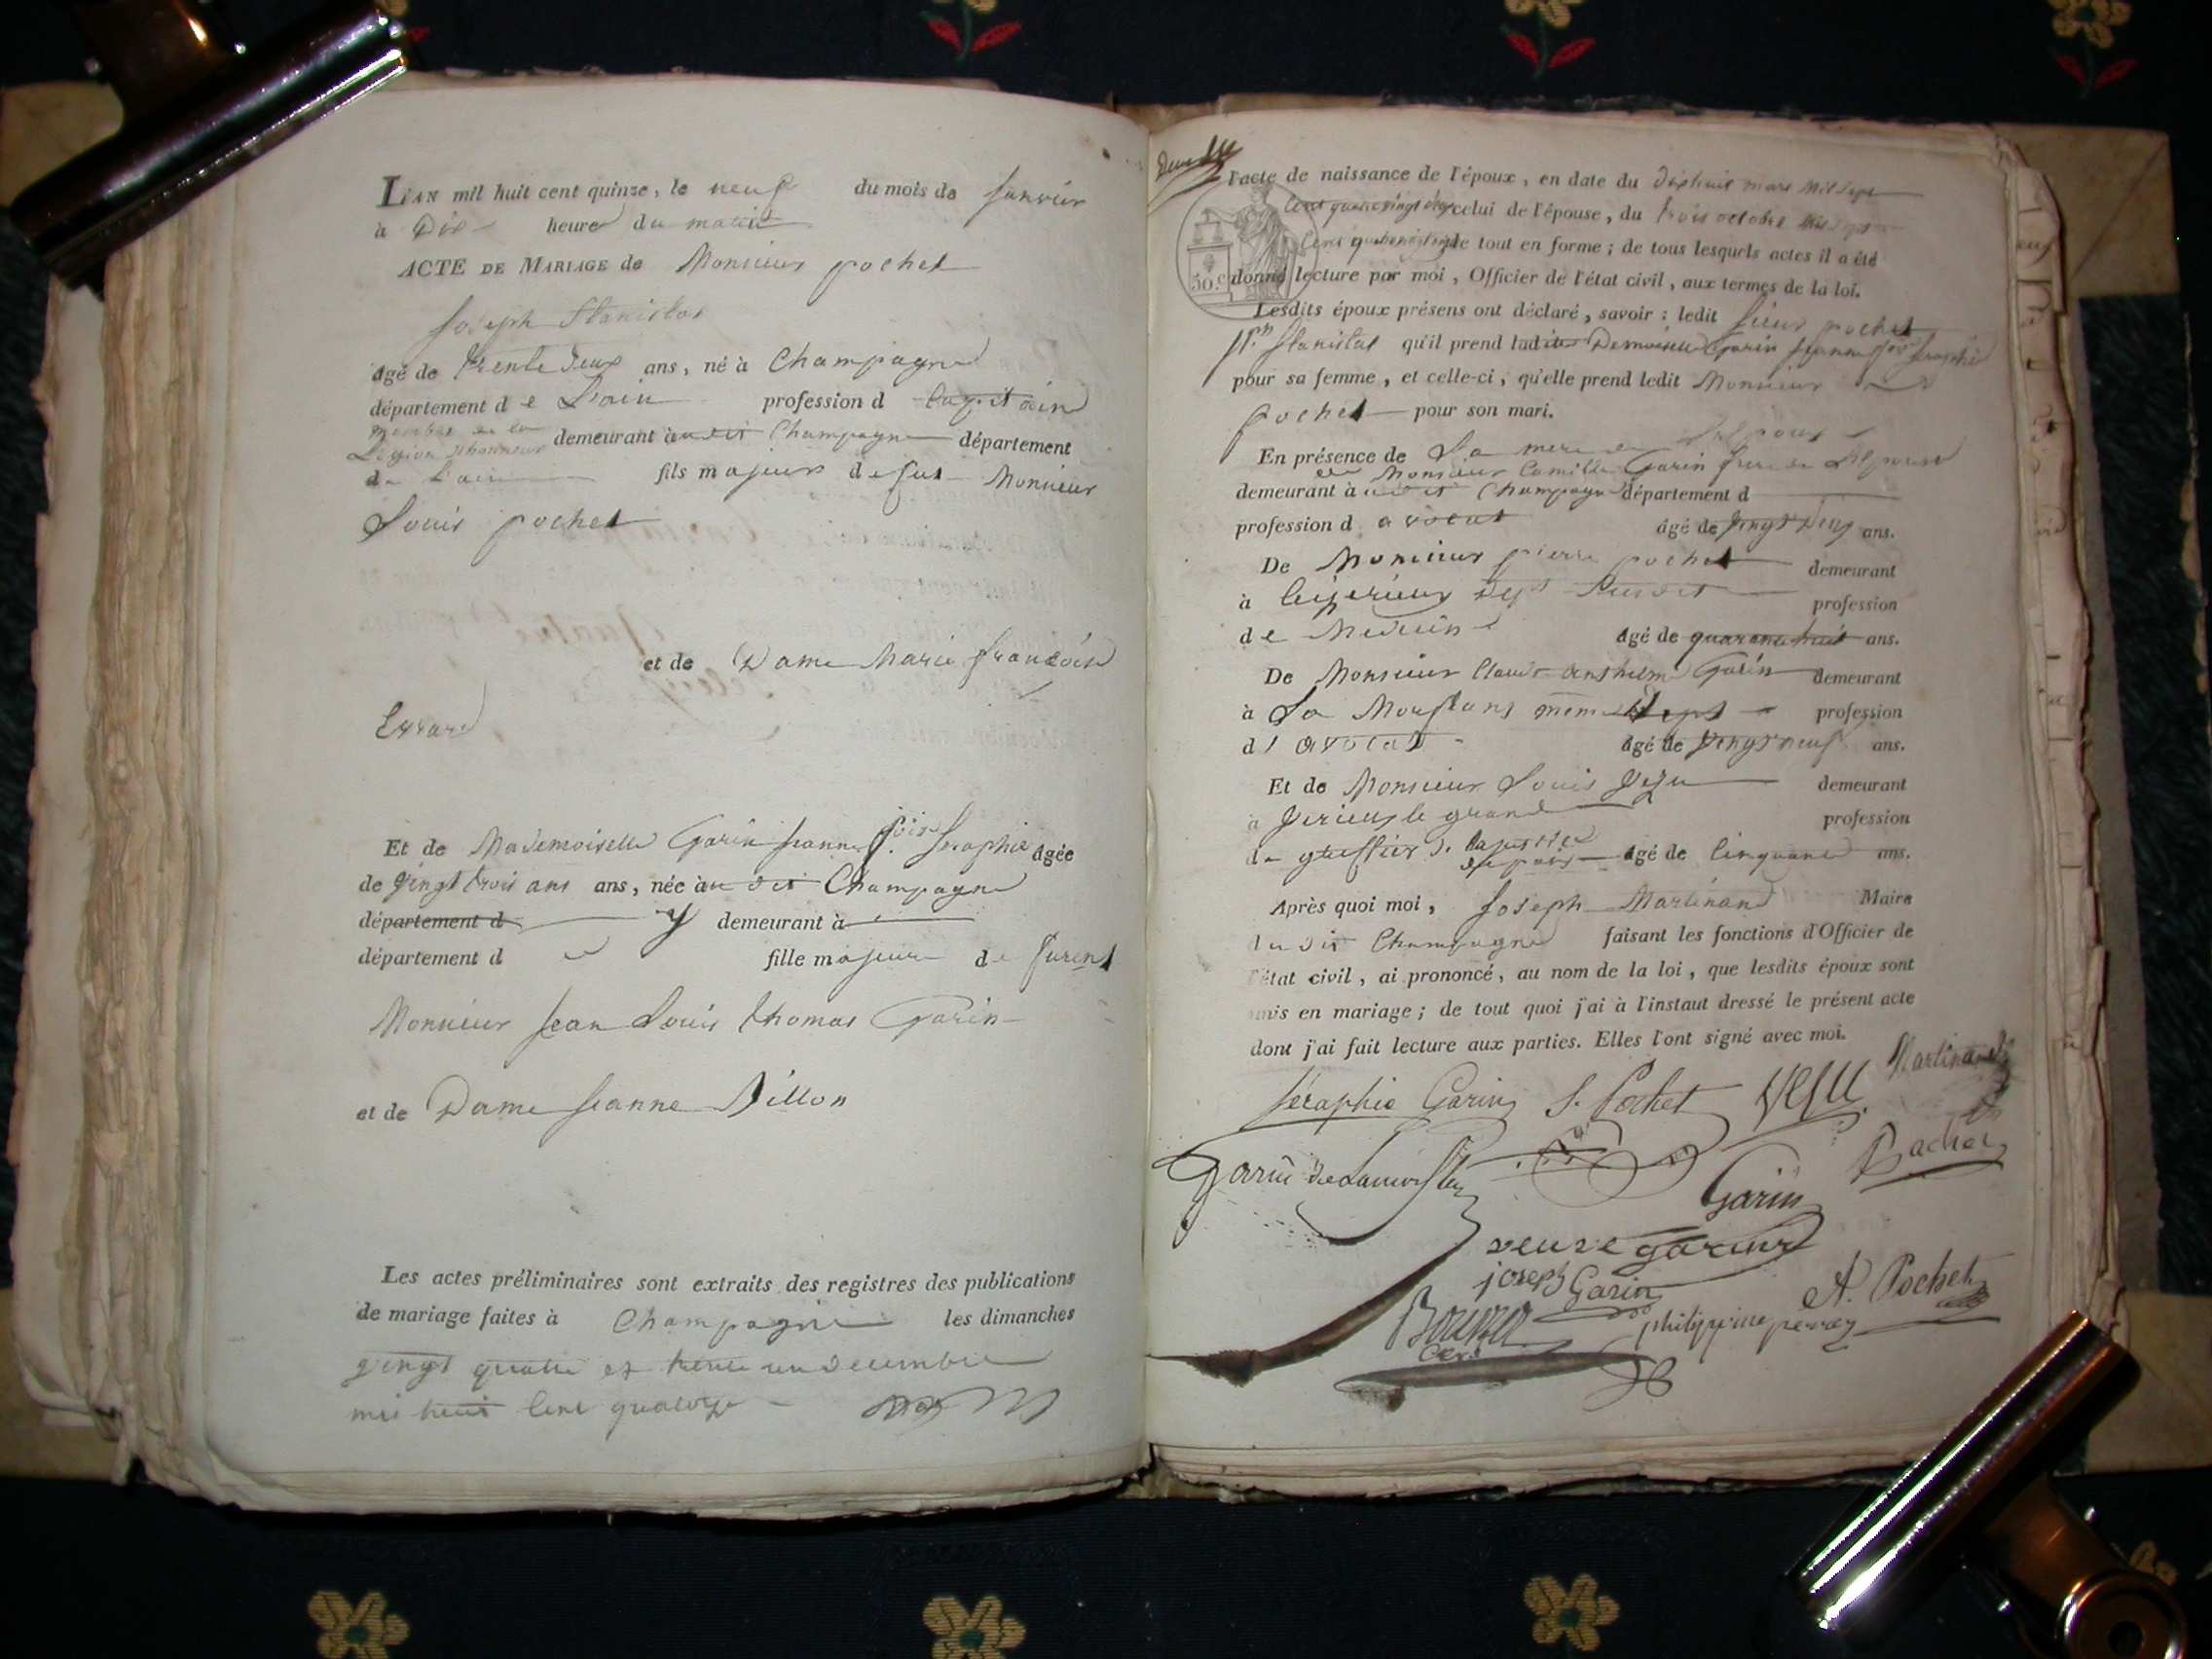 L'AN mil huit cent quinze, le neuf du mois de janvier
à Dix heure du matin
ACTE DE MARIAGE de Monsieur pochet
Joseph Stanislas
âgé de trente deux ans, né à Champagne
département de L'ain profession d Capitain
membre de la
Légion d'honneur demeurant audit Champagne département
de L'ain fils majeur de feu Monsieur
Louis pochet
et de Dame Marie françoise
Errard
Et de Mademoiselle Garin jeanne f.oise Seraphie âgée
de vingt trois ans ans, née audit Champagne
département d y demeurant à
département d fille majeure de furent
Monsieur jean Louis thomas Garin
et de Dame jeanne Billon
Les actes préliminaires sont extraits des registres des publications
de mariage faites à Champagne les dimanches
vingt quatre et trente un decembre
mil huit cent quatorze
l'acte de naissance de l'époux, en date du dixhuit mars mil sept
cent quatre vingt celui de l'épouse, du trois octobre mil sept
cent le tout en forme ; de tous lesquels actes il a été
50.c donné lecture par moi, Officier de l'état civil, aux termes de la loi.
Lesdits époux présens ont déclaré, savoir : ledit sieur pochet
Stanislas qu'il prend ladite Demoiselle Garin jeanne f.oise Seraphie
pour sa femme, et celle-ci, qu'elle prend ledit Monsieur
pochet pour son mari.
En présence de La mere de L'epoux
de Monsieur Camille Garin frere de L'epouse
demeurant à audit Champagne département d
profession d avocat âgé de vingt deux ans.
De Monsieur pierre pochet demeurant
à Ceyzerieux dept susdit profession
de Medecin âgé de quarante huit ans.
De Monsieur Claude anthelme Garin demeurant
à La même dept profession
d'avocat âgé de vingt neuf ans.
Et de Monsieur Louis Vezu demeurant
à Virieux le grand profession
de greffier d. la justice
de paix âgé de Cinquante ans.
Après quoi moi, Joseph Martinand Maire
dudit Champagne faisant les fonctions d'Officier de
l'état civil, ai prononcé, au nom de la loi, que lesdits époux sont
unis en mariage ; de tout quoi j'ai à l'instant dressé le présent acte
dont j'ai fait lecture aux parties. Elles l'ont signé avec moi.
Martinand
séraphie Garin S. Pochet Vesu
Garin Pochet
Garin
veuve garin
joseph Garin
A. Pochet
philippine perray